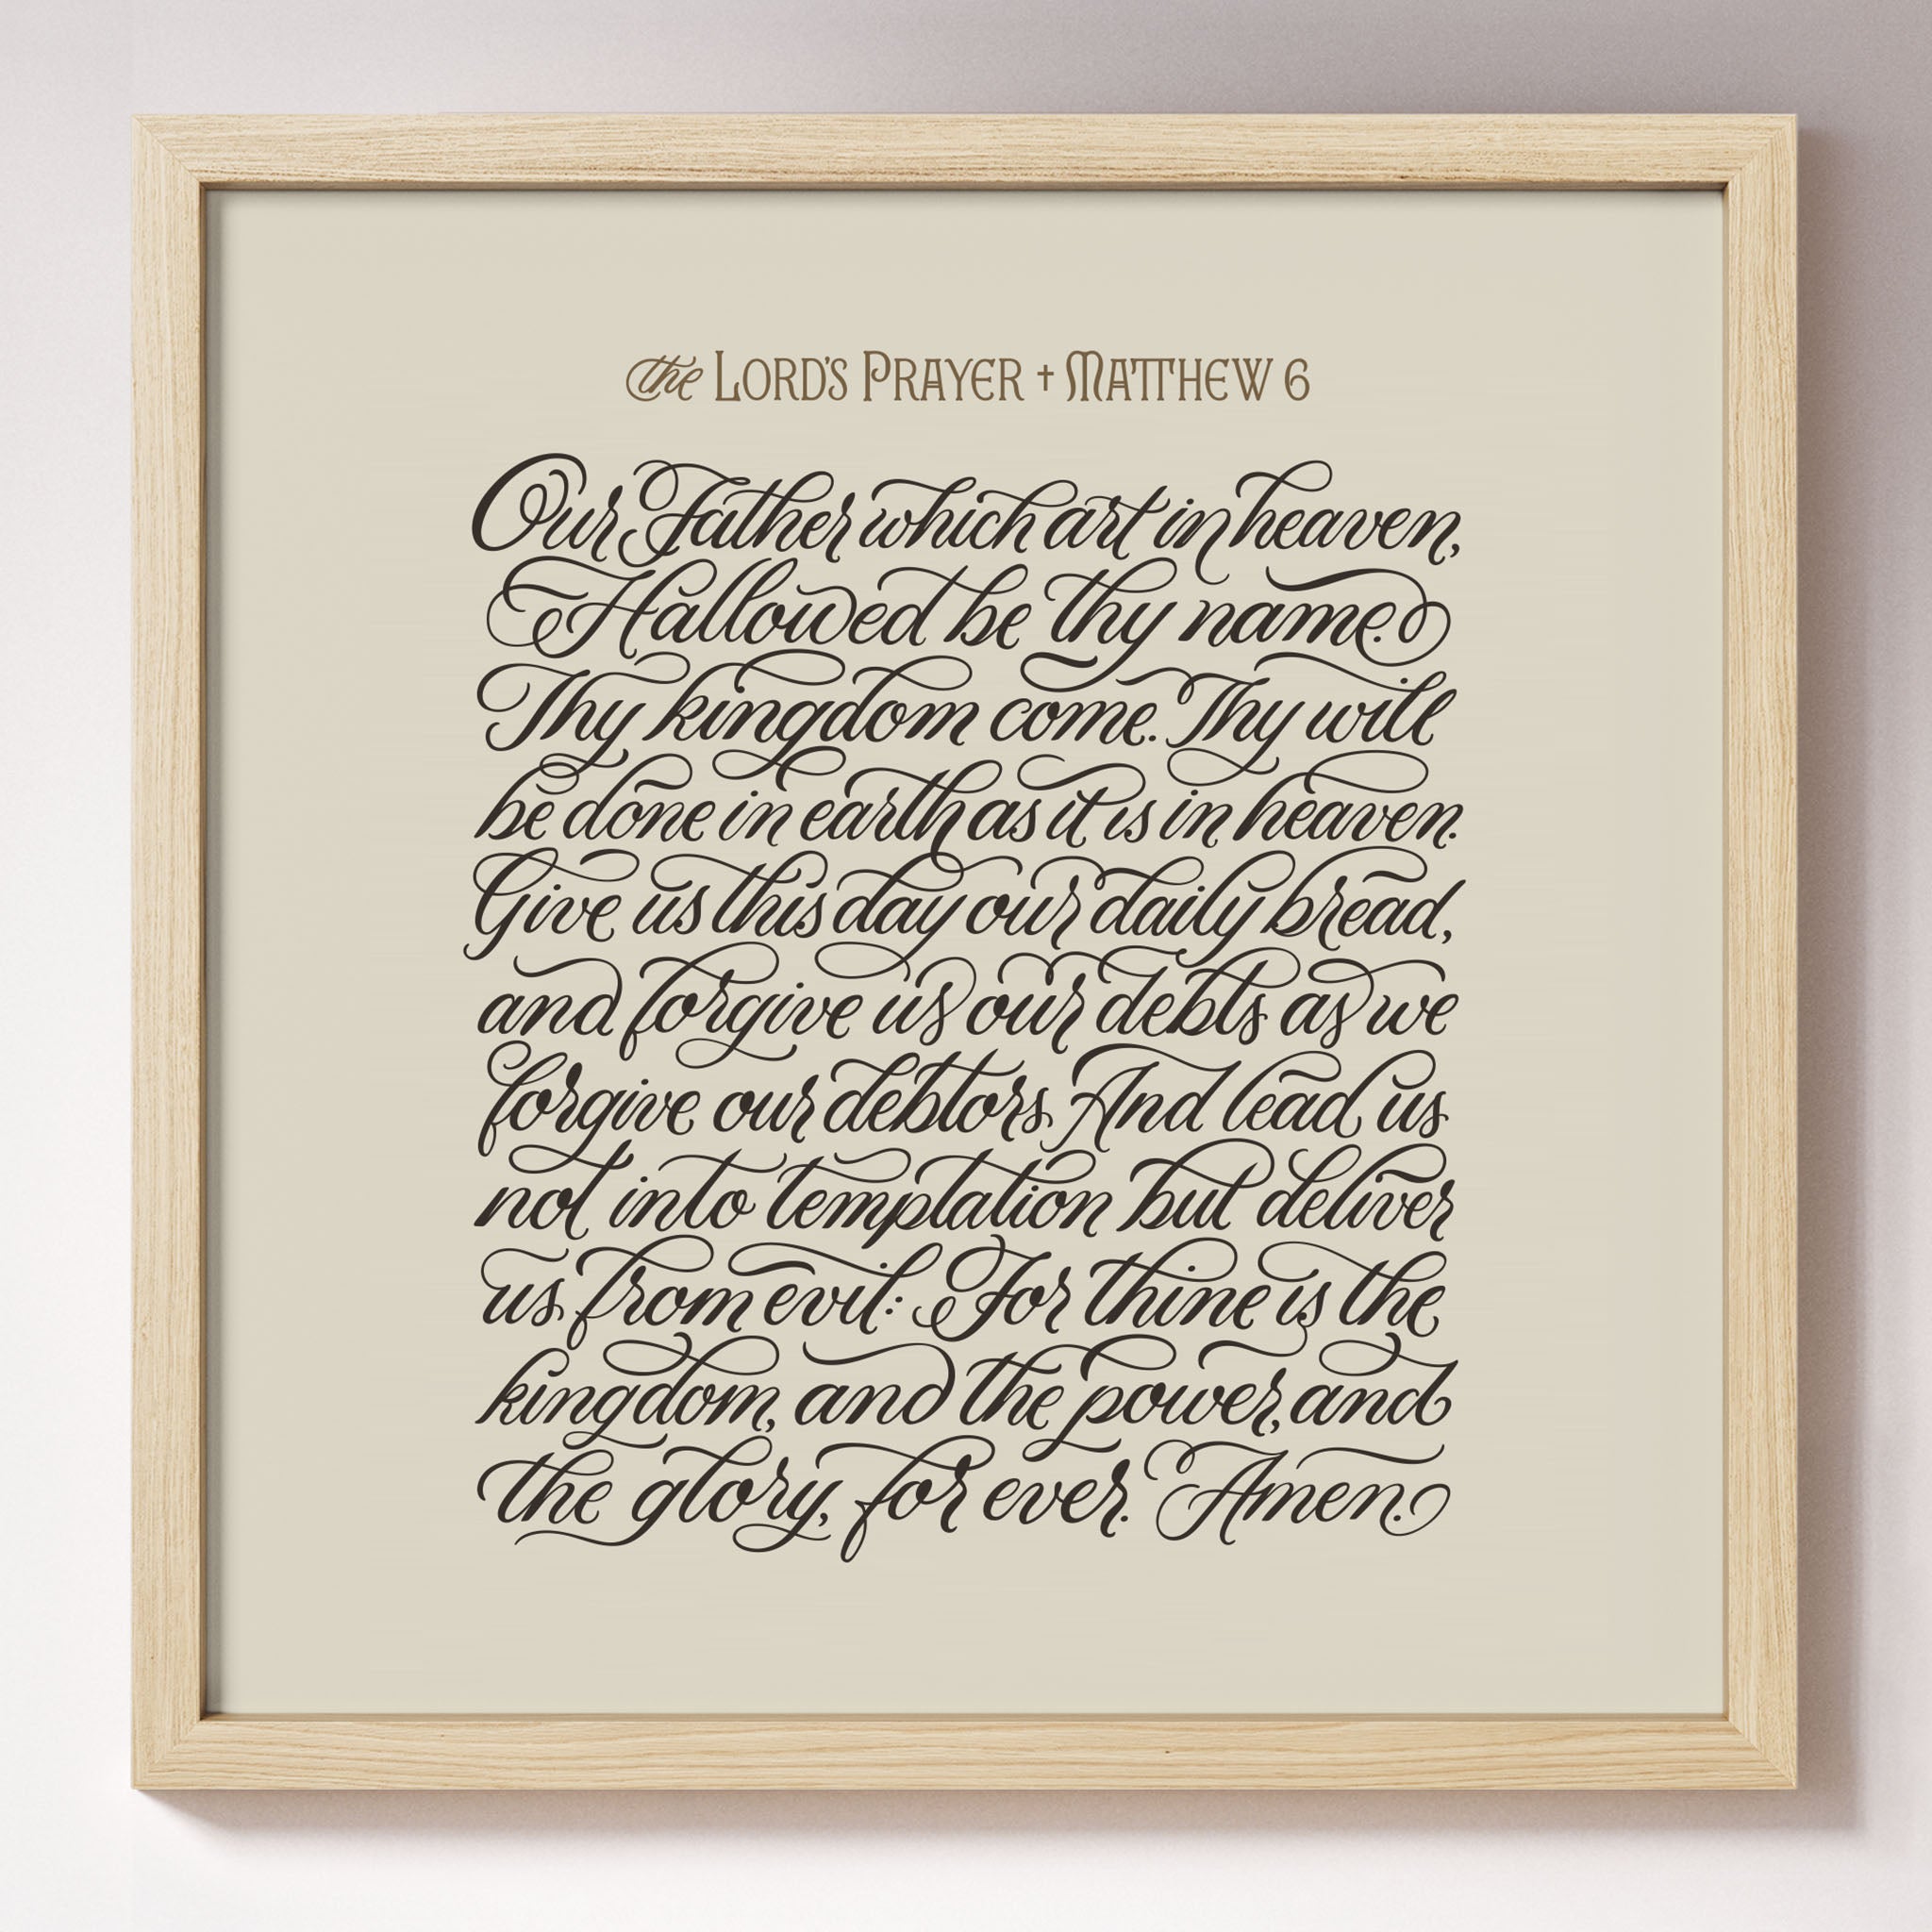 the LORD'S PRAYER † MATTHEW 6
Our Father which art in heaven,
Hallowed be thy name.
Thy kingdom come. Thy will
be done in earth as it is in heaven.
Give us this day our daily bread,
and forgive us our debts as we
forgive our debtors. And lead us
not into temptation but deliver
us from evil: For thine is the
kingdom, and the power, and
the glory, for ever. Amen.